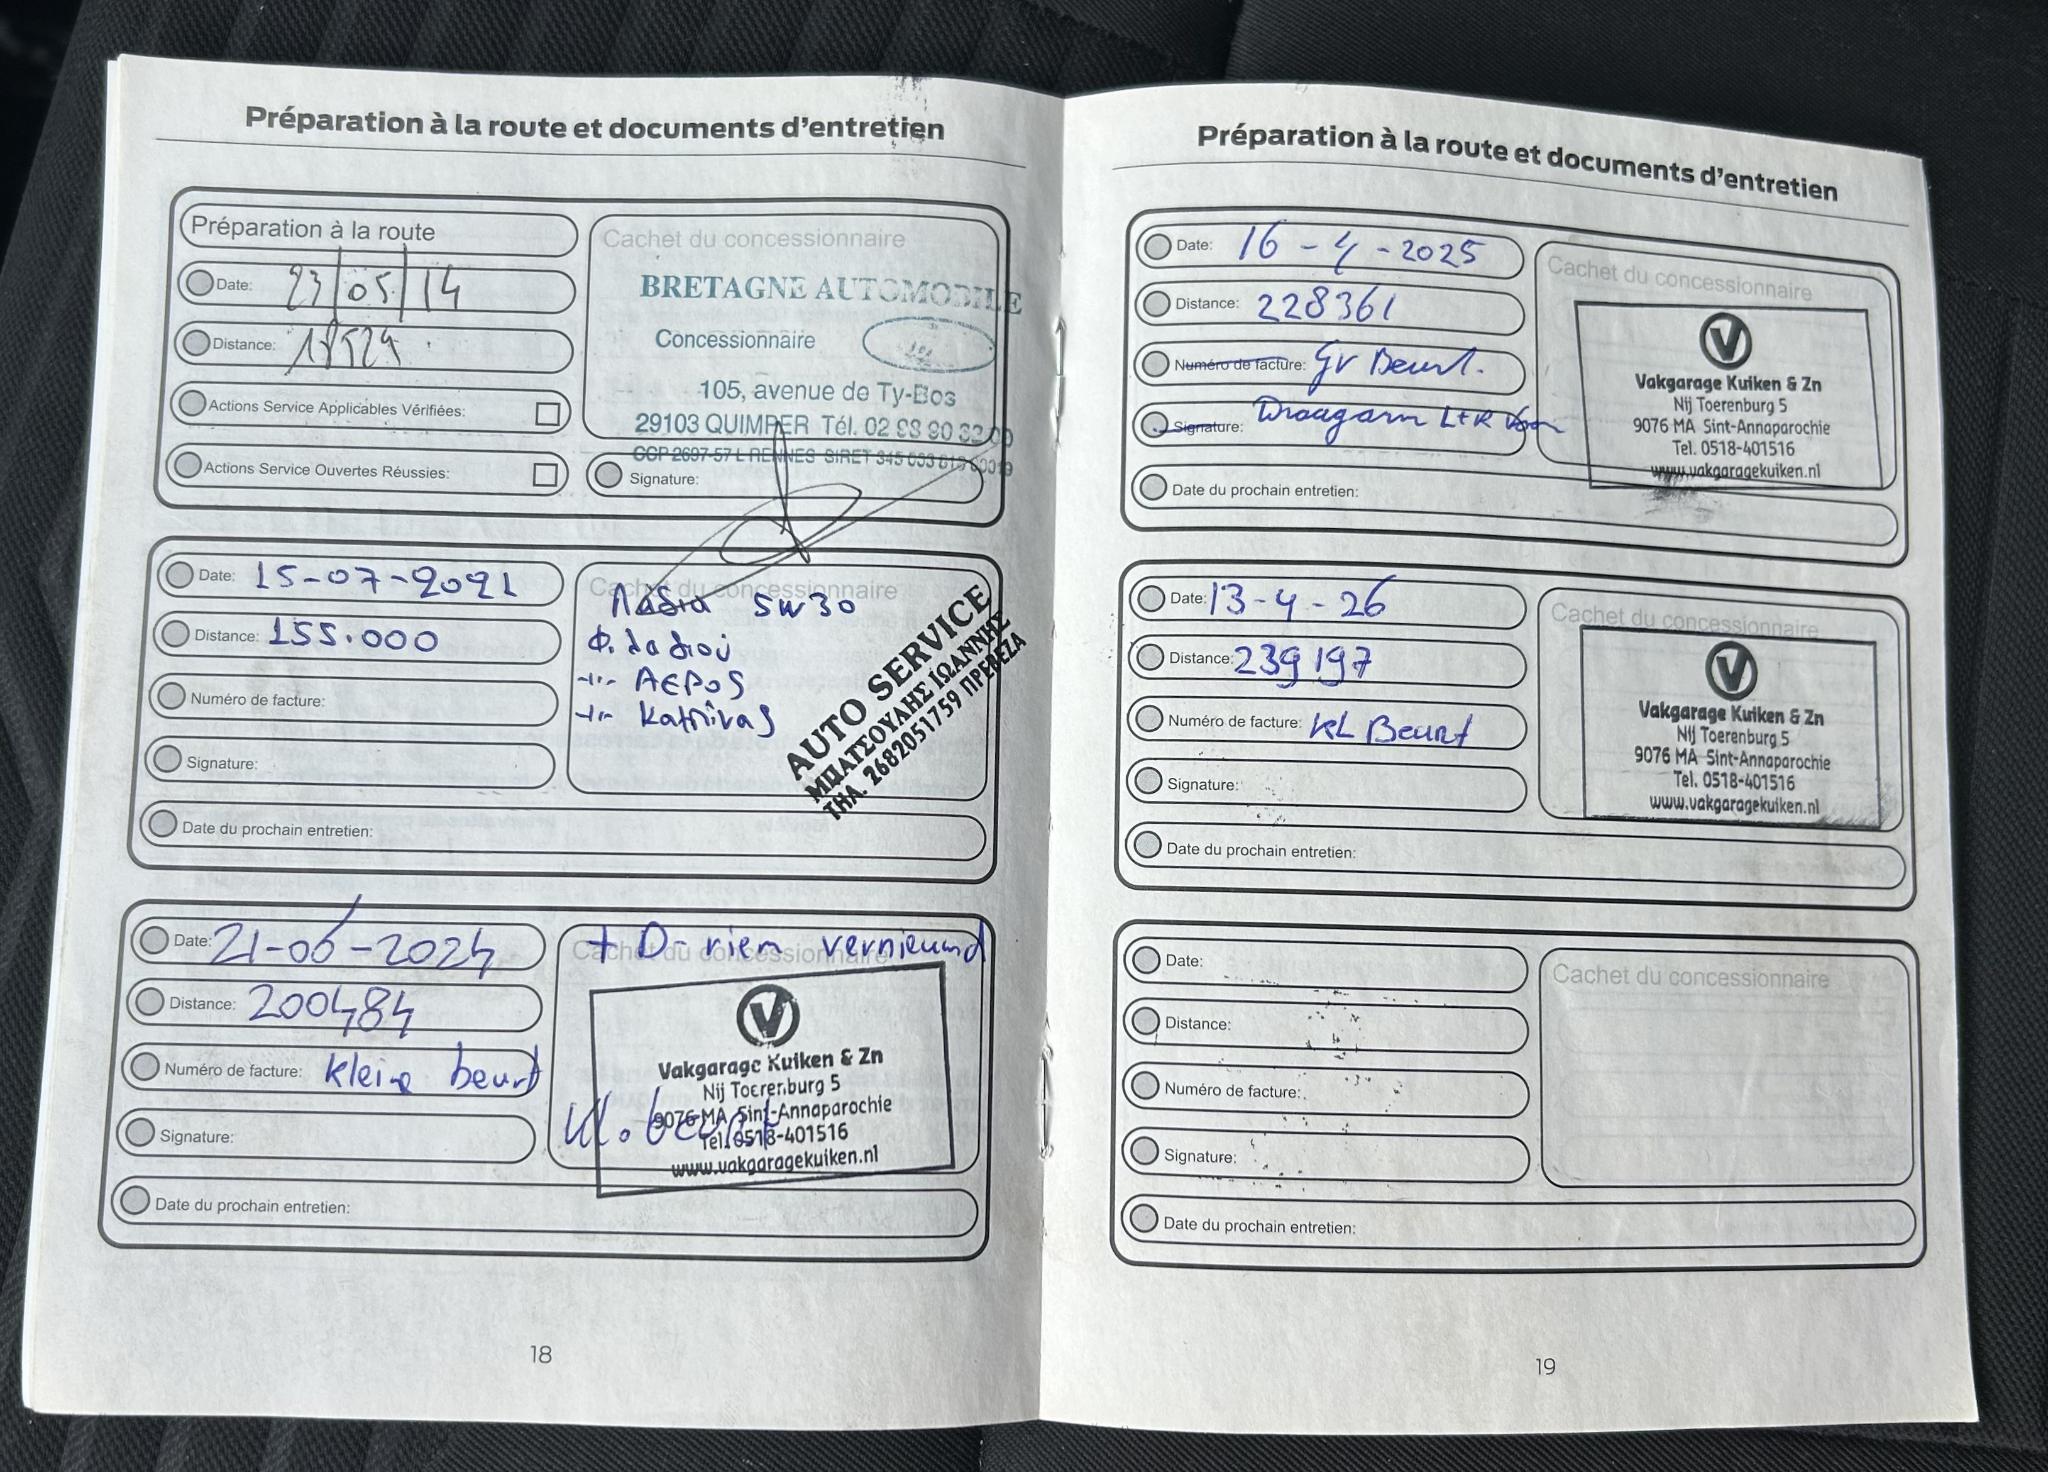 Préparation à la route et documents d'entretien
Préparation à la route
Date: 23/05/14
Distance:
Actions Service Applicables Vérifiées:
Actions Service Ouvertes Réussies:
Cachet du concessionnaire
BRETAGNE AUTOMOBILE
Concessionnaire
105, avenue de Ty-Bos
29103 QUIMPER Tél. 02 98 90
CCP 2697-57 L RENNES SIRET 345
Signature:
Date: 15-07-2021
Distance: 155.000
Numéro de facture:
Signature:
Date du prochain entretien:
Cachet du concessionnaire
Λάδια 5W30
Φ. λαδιού
-"- ΑΕΡΟΣ
-"- Καμπίνας
AUTO SERVICE
ΜΠΑΤΣΟΥΛΗΣ ΙΩΑΝΝΗΣ
ΤΗΛ. 2682051759 ΠΡΕΒΕΖΑ
Date: 21-06-2024
Distance: 200484
Numéro de facture: kleine beurt
Signature:
Date du prochain entretien:
Cachet du concessionnaire
+ D-riem vernieuwd
Vakgarage Kuiken & Zn
Nij Toerenburg 5
9076 MA Sint-Annaparochie
Tel. 0518-401516
www.vakgaragekuiken.nl
kl. beurt
18
Préparation à la route et documents d'entretien
Date: 16-4-2025
Distance: 228361
Numéro de facture: Gr Beurt.
Signature: Draagarm L+R Voor
Date du prochain entretien:
Cachet du concessionnaire
Vakgarage Kuiken & Zn
Nij Toerenburg 5
9076 MA Sint-Annaparochie
Tel. 0518-401516
www.vakgaragekuiken.nl
Date: 13-4-26
Distance: 239197
Numéro de facture: KL Beurt
Signature:
Date du prochain entretien:
Cachet du concessionnaire
Vakgarage Kuiken & Zn
Nij Toerenburg 5
9076 MA Sint-Annaparochie
Tel. 0518-401516
www.vakgaragekuiken.nl
Date:
Distance:
Numéro de facture:
Signature:
Date du prochain entretien:
Cachet du concessionnaire
19